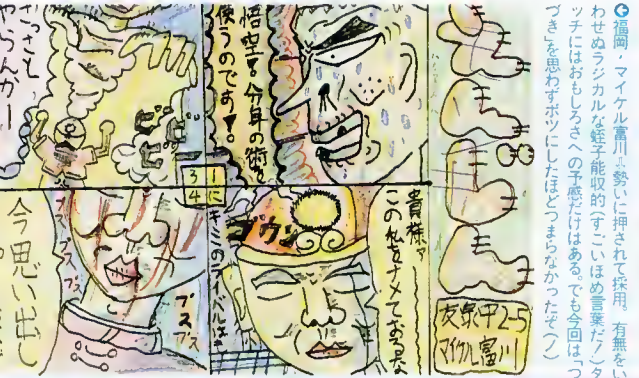 福岡・マイケル富川⇩勢いに押されて採用。有無をい
わせぬラジカルな蛭子能収的(すごいほめ言葉だ!)タ
ッチにはおもしろさへの予感だけはある。でも今回は〝つ
づき〟を思わずボツにしたほどつまらなかったぞ(ノ)
友泉中2-5
マイケル富川
悟空る分身の術を
使うのです
さっさと
やらんかー
貴様ァ
この私をナメておるな
ゴウン
1に
3
4
キミのライバルは
ブスブス
ブス
ブス
今思い出し